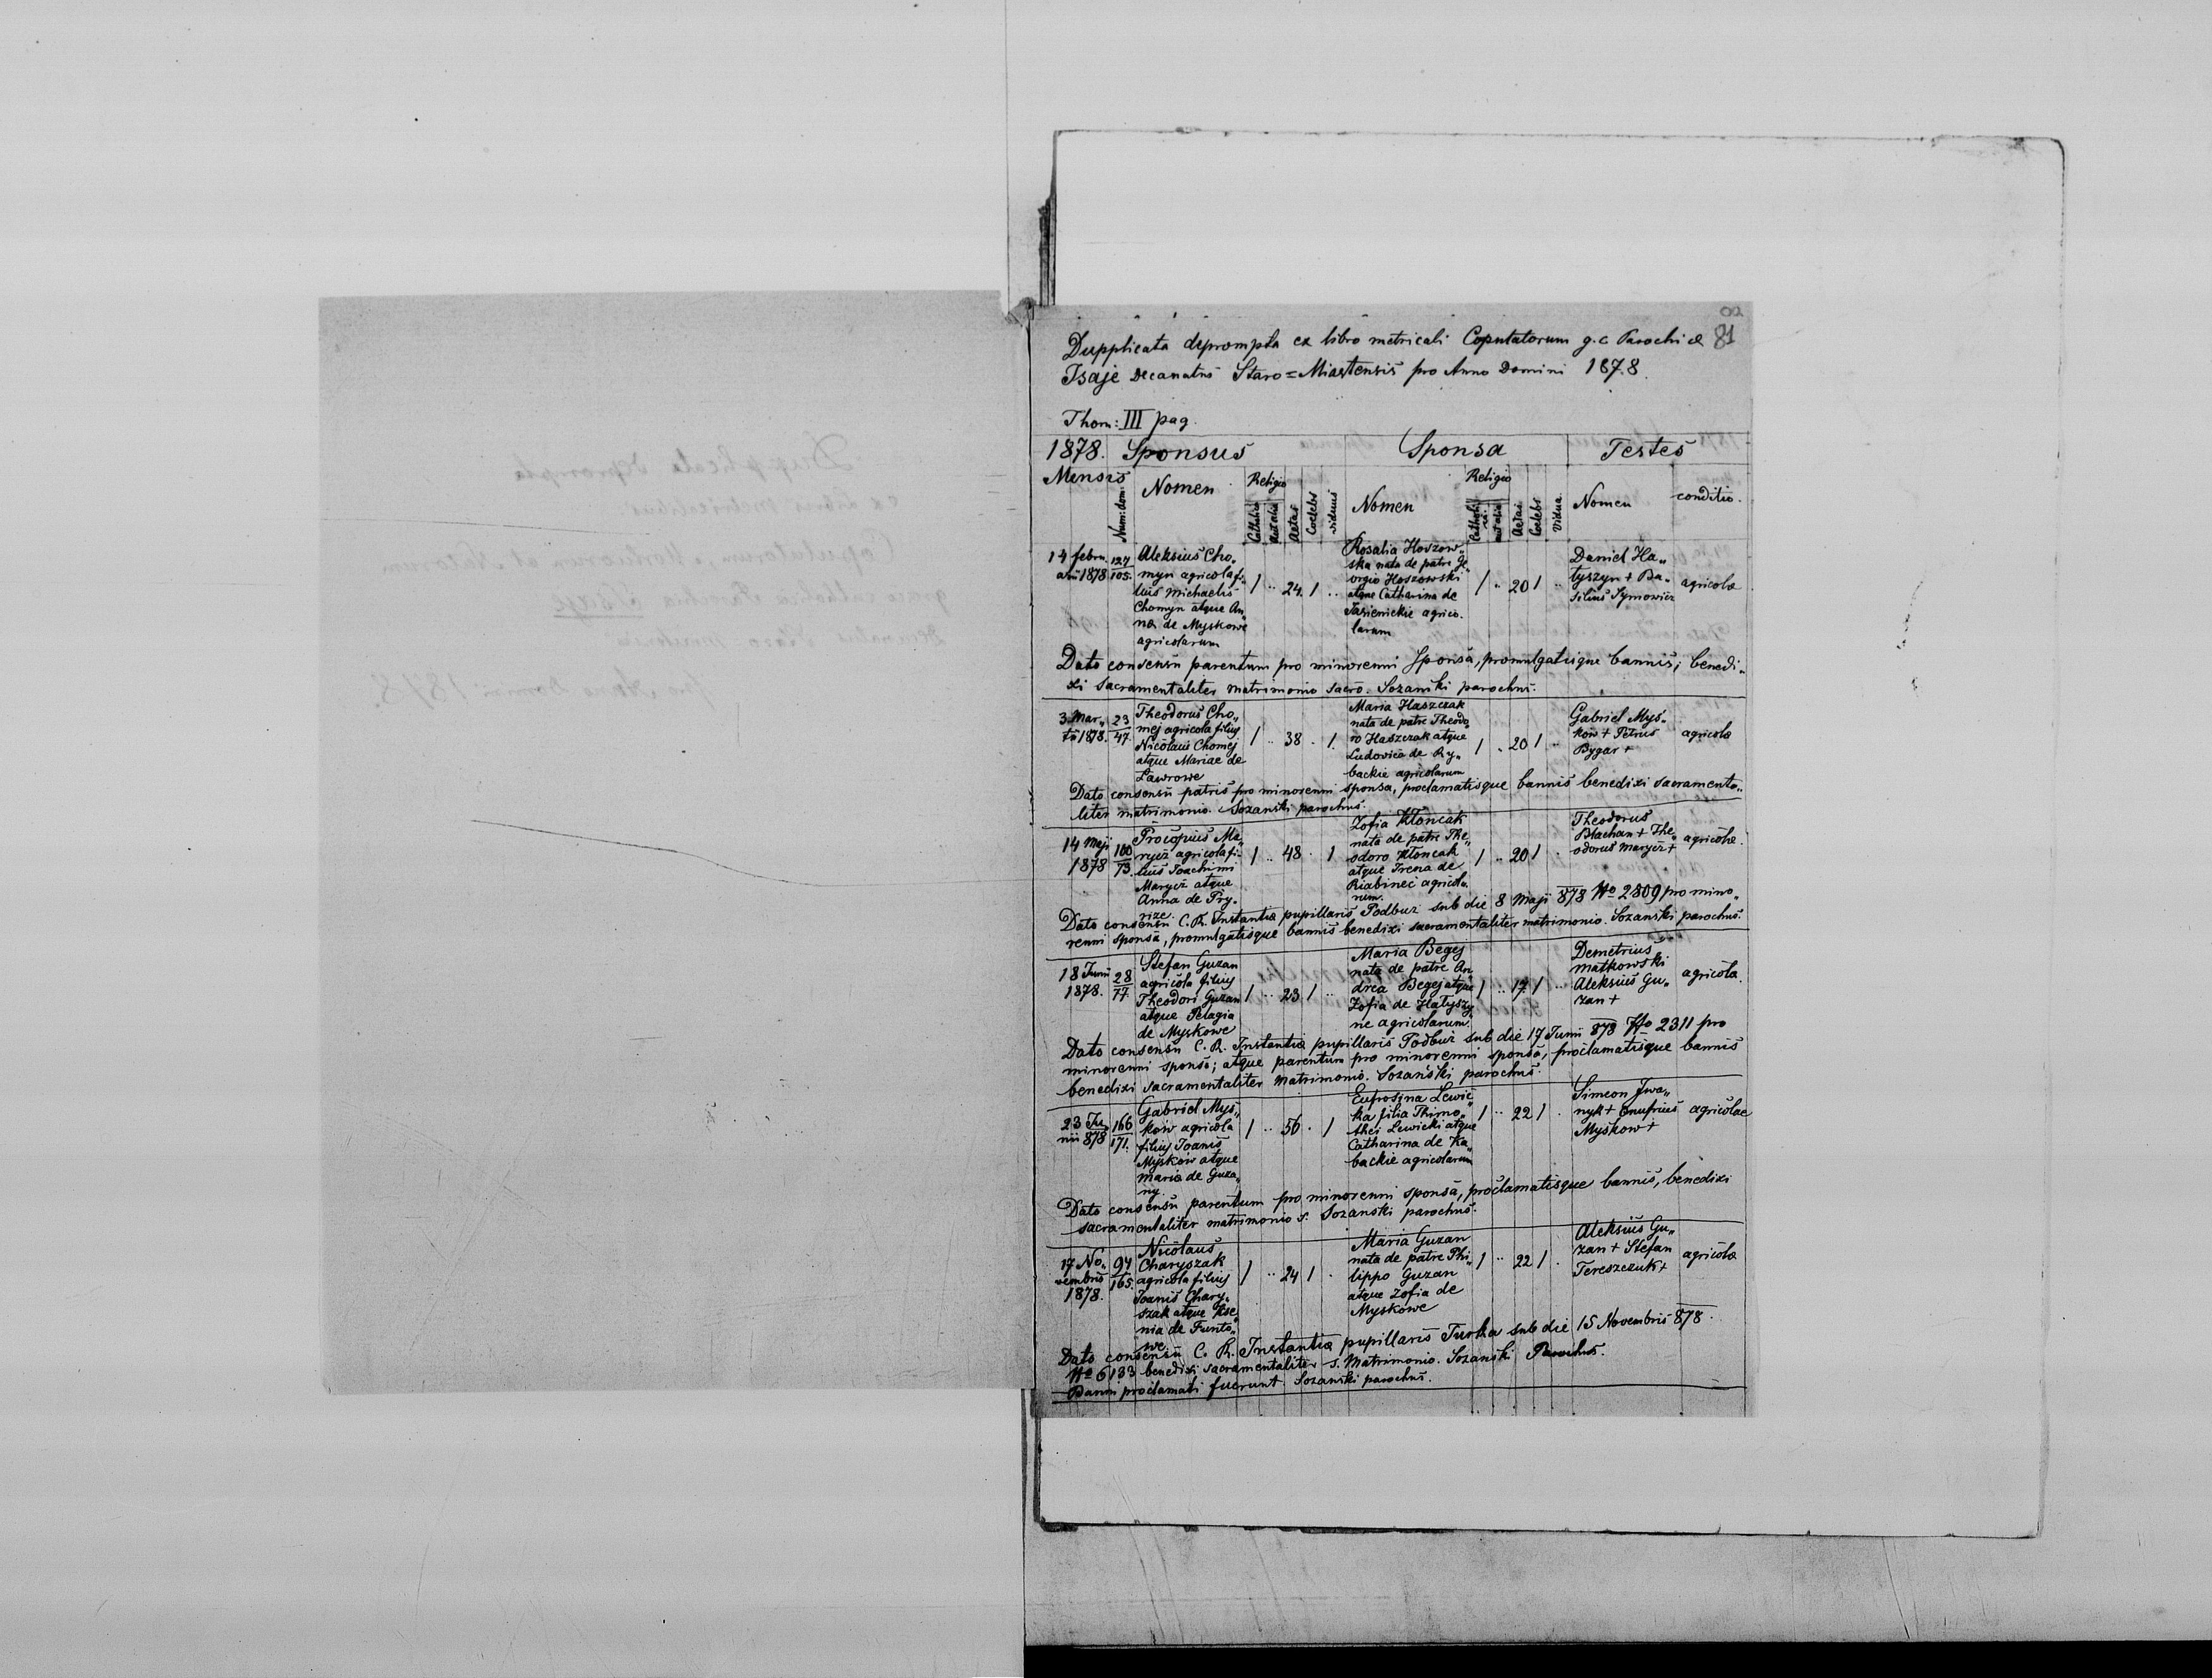 81
Dupplicata deprompta ex libro metricali Copulatorum g.c Parochiæ
Isaje Decanatus Staro=Miastensis pro Anno Domini 1878.
Thom: III pag.
1878. Sponsus Sponsa Testes
Mensis Num: dom: Nomen Religio Aetas Coelebs viduus Nomen Religio Aetas Coelebs Vidua Nomen conditio.
14 febru„ 127 Aleksius Cho„
arii 1878 105. myn agricola fi„
lius Michaelis
Chomyn atque An„
na de Myskowe
agricolarum
1 .. 24 1 ..
Rosalia Hoszow„
ska nata de patre Ge„
orgio Hoszowski
atque Catharina de
Jasienickie agrico„
larum
1 .. 20 1 ..
Daniel Ha„
tyszyn + Ba„
silius Symowicz
agricolæ
Dato consensu parentum pro minorenni Sponsa, promulgatisque bannis, benedi„
xi sacramentaliter matrimonio sacro. Sozanski parochus.
3. Mar„ 23 Theodorus Cho„
tii 1878. 47. mej agricola filius
Nicolaus Chomej
atque Mariae de
Lawrowe
1 .. 38 . 1.
Maria Haszczak
nata de patre Theodo„
ro Haszczak atque
Ludovica de Ry„
backie agricolarum
1 . 20 1 ..
Gabriel Mys„
kow + Petrus
Bygar +
agricolæ
Dato consensu patris pro minorenni sponsa, proclamatisque bannis benedixi sacramenta„
liter matrimonio. Sozanski parochus.
14 Maji 100 Procopius Ma„
1878 73. rycz agricola fi„
lius Joachimi
Marycz atque
Anna de Pry„
rize.
1 .. 48 . 1
Zofia Kłonćak
nata de patre The„
odoro Kłonćak
atque Irena de
Riabinec agricola„
rum.
1 .. 20 1 .
Theodorus
Blachan + The„
odorus Marycz +
agricolæ.
Dato consensu C. R. Instantiæ pupillaris Podbuz sub die 8 Maji 878 No 2809 pro mino„
renni sponsa, promulgatisque bannis benedixi sacramentaliter matrimonio. Sozanski parochus.
18 Junii 28 Stefan Guzan
1878. 77. agricola filius
Theodori Guzan
atque Pelagia
de Myskowe
1 .. 23 1 ..
Maria Begej
nata de patre An„
drea Begej atque
Zofia de Hatyszy„
ne agricolarum.
1 .. 17. 1 ..
Demetrius
Matkowski
Aleksius Gu„
zan +
agricolæ.
Dato consensu C. R. Instantiæ pupillaris Podbuz sub die 17 Junii 878 No 2311 pro
minorenni sponso; atque parentum pro minorenni sponsa, proclamatisque bannis
benedixi sacramentaliter Matrimonio. Sozański parochus.
23 Ju„ 166 Gabriel Mys„
nii 878 171. kow agricola
filius Joanis
Myskow atque
Maria de Guza„
ny.
1 .. 56 . 1
Eufrosina Lewic„
ka filia Thimo„
thei Lewicki atque
Catharina de Ka„
backie agricolarum
1 .. 22 1 .
Simeon Iwa„
nyk + Onufrius
Myskow +
agricolae
Dato consensu parentum pro minorenni sponsa, proclamatisque bannis, benedixi
sacramentaliter matrimonio s. Sozanski parochus.
17 No„ 94 Nicolaus
vembris 165. Charyszak
1878. agricola filius
Joanis Chary„
szak atque Kse„
nia de Funto„
we.
1 .. 24 1 .
Maria Guzan
nata de patre Phi„
lippo Guzan
atque Zofia de
Myskowe
1 .. 22 1 .
Aleksius Gu„
zan + Stefan
Tereszczuk +
agricolæ
Dato consensu C. R. Instantiæ pupillaris Turka sub die 15 Novembris 878.
No 6133 benedixi sacramentaliter s. Matrimonio. Sozanski Parochus.
Banni proclamati fuerunt. Sozanski parochus.